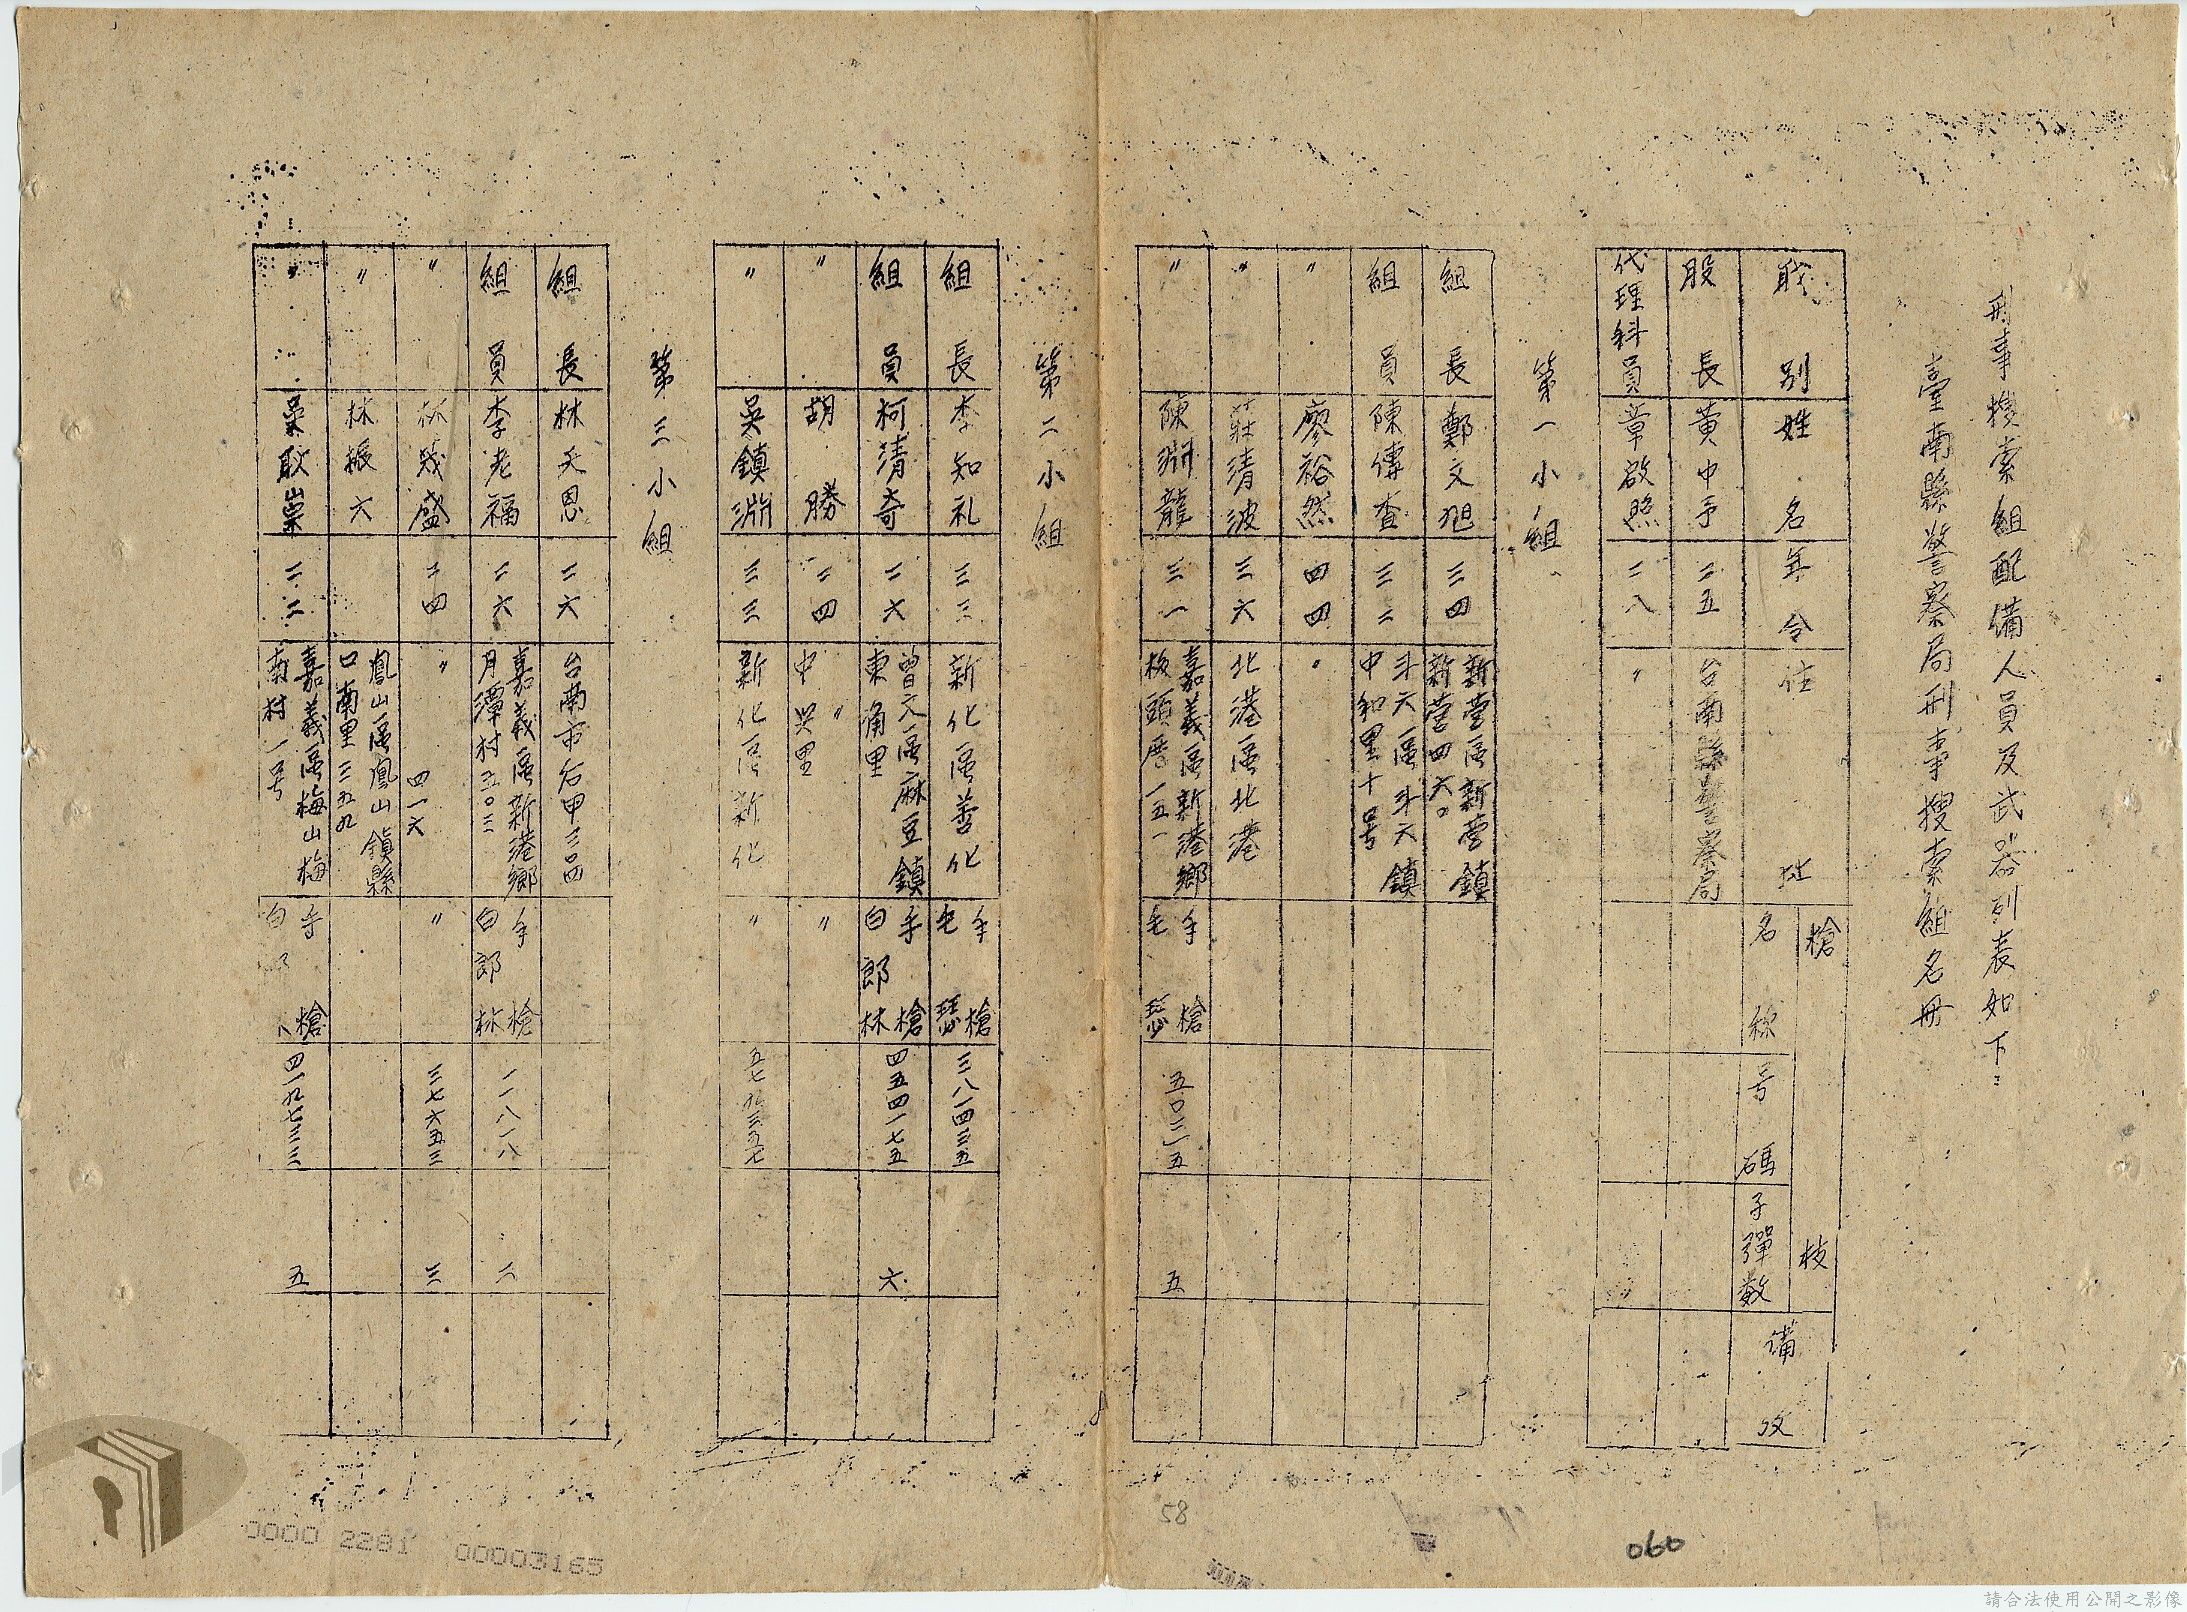 刑事搜索組配備人員及武器列表如下:
臺南縣警察局刑事搜索組名冊
職別 姓名 年令 住址 槍枝 名称 号碼 子彈数 備攷
股長 黃中予 二五 台南縣警察局
代理科員 章啟照 二八 〃
第一小組
組長 鄭文旭 三四 新營區新營鎮新營四六〇
組員 陳傳查 三二 斗六區斗六鎮中和里十号
〃 廖裕然 四四 〃
〃 莊清波 三六 北港區北港
〃 陳淵龍 三一 嘉義區新港鄉板頭厝一五一 手槍毛瑟 五〇二一五 五
第二小組
組長 李知礼 三三 新化區善化 手槍毛瑟 三八一四三五
組員 柯清奇 二六 曾文區麻豆鎮東角里 手槍白郎林 四五四一七五 六
〃 胡勝 二四 〃 中興里 〃
〃 吳鎮淵 三三 新化區新化 〃 五七九三五七
第三小組
組長 林天恩 二六 台南市右甲三〇四
組員 李老福 二六 嘉義區新港鄉月潭村五〇三 手槍白郎林 一一八一八 二
〃 林茂盛 二四 〃 四一六 〃 三七六五三 三
〃 林振六 鳳山區鳳山鎮縣口南里三五九
〃 葉耿崇 二二 嘉義區梅山梅南村一号 手槍白 四一九七三三 五
58
060
0000 2281 00003165
請合法使用公開之影像